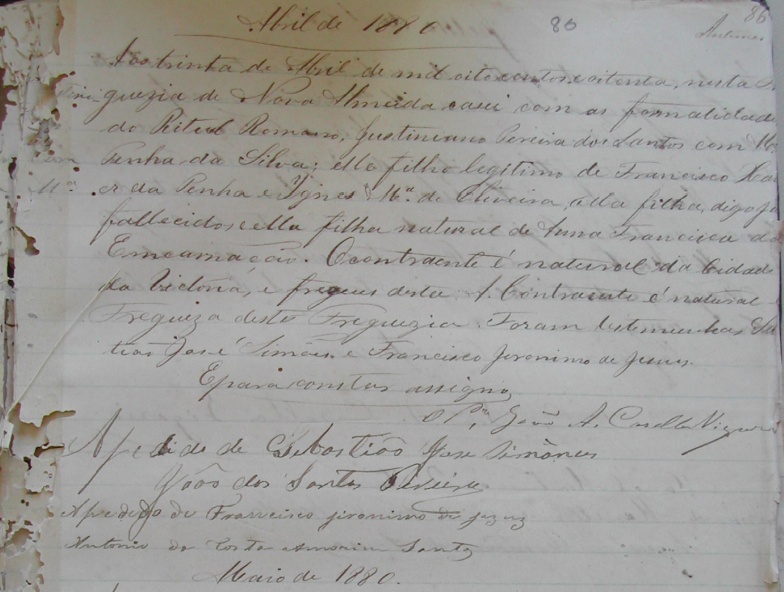 Abril de 1880
80
86
Aos trinta de Abril de mil oitocentos e oitenta, nesta
guezia de Nova Almeida casei com as formalidad
do Ritual Romano, Justiniano Pereira dos Santos com
Penha da Silva; elle filho legitimo de Francisco Xa
er da Penha e Ignes Mª. de Oliveira, digo já
fallecidos, ella filha natural de Anna Francisca da
Encarnação. O contraente é natural da Cidad
da Victoria, e freguez desta. A Contraente é natural
Fregueza desta Freguezia. Foram testemunhas
tião José Simões e Francisco Jeronimo de Jesus.
E para constar assigno
O Pe. João A.
Apedido de Sebastião Jose Simões
João dos Santos Pereira
Apedido de Francisco jironimo de jezuz
Antonio da Costa Amorim Santos
Maio de 1880.